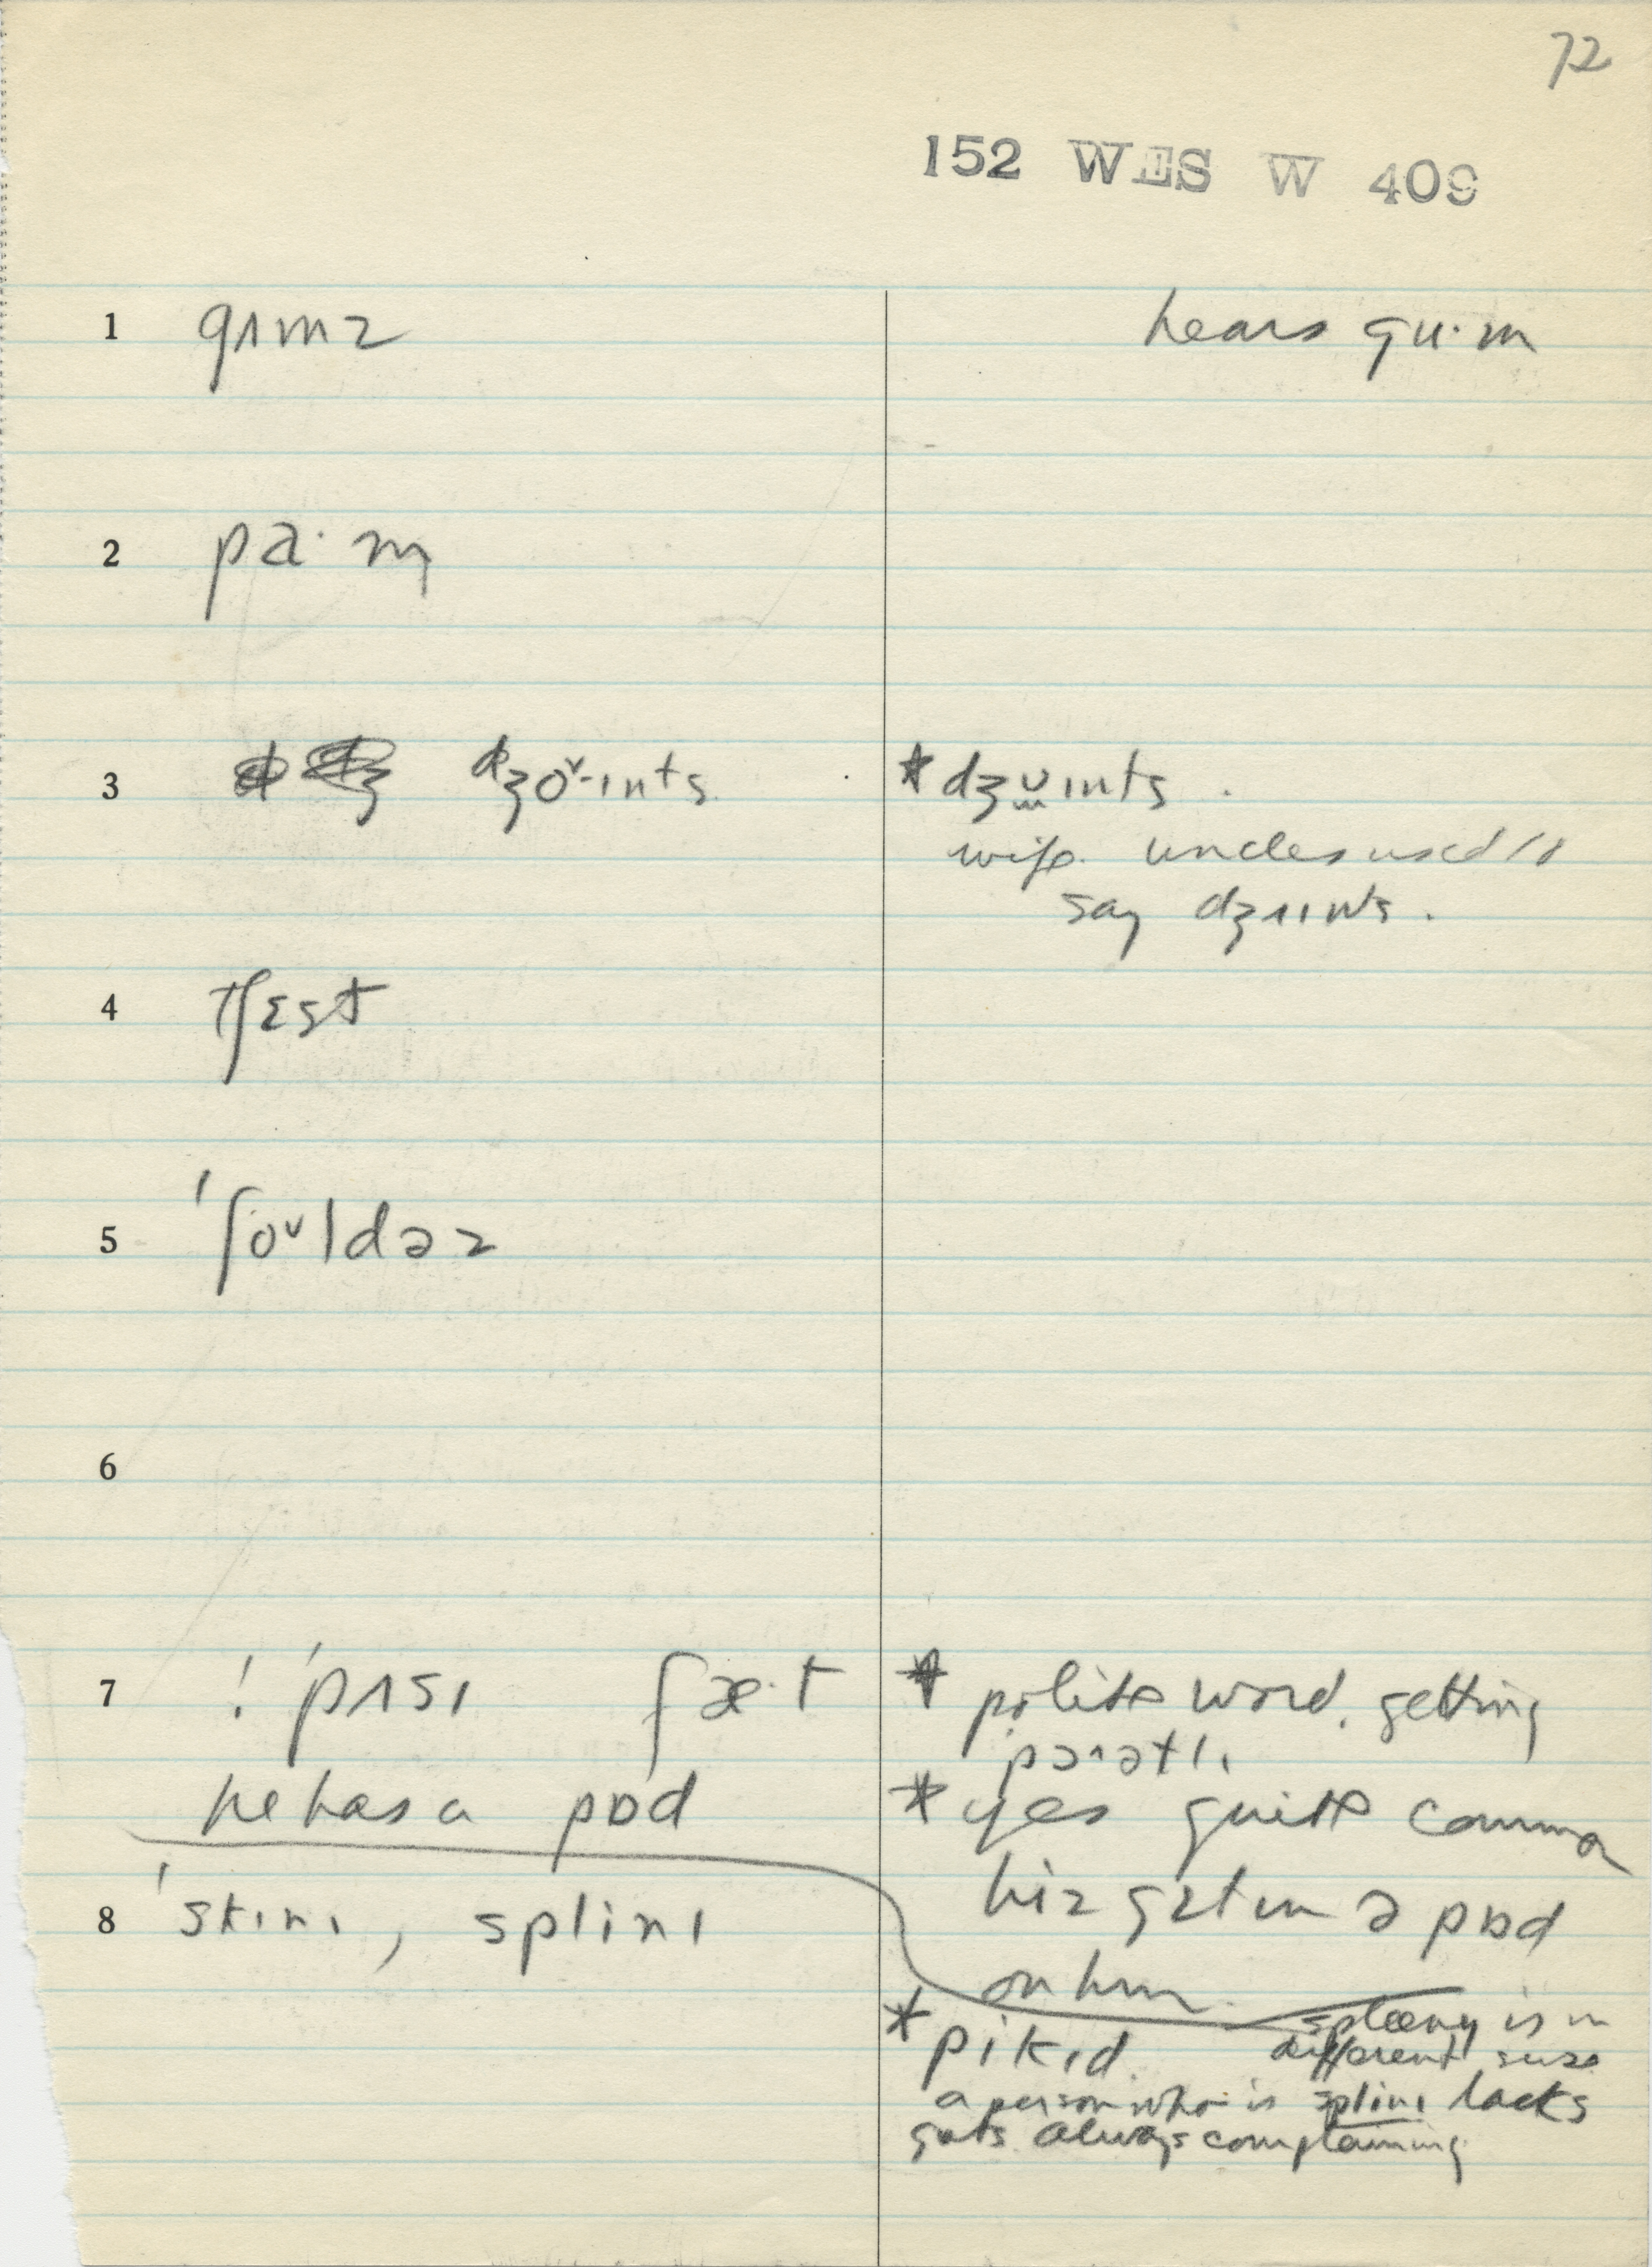 72
152 WES W 409
1 gʌmz hears gu·m
2 pa·m
3 dʒoˇ·ɪnts * dʒʊɪnts .
wife uncles used to
say dʒʌɪnts .
4 tʃɛst
5 'ʃoᵛldəz
6
7 ! 'pʌsɪ fæ·t * polite word. getting
he has a pɒd
* yes quite common
hiz gɛtɪn ə pɒd
on him.
8 'skɪnɪ, splinɪ
* pikɪd spleeny is in
different sense
a person who is splinɪ lacks
guts always complaining